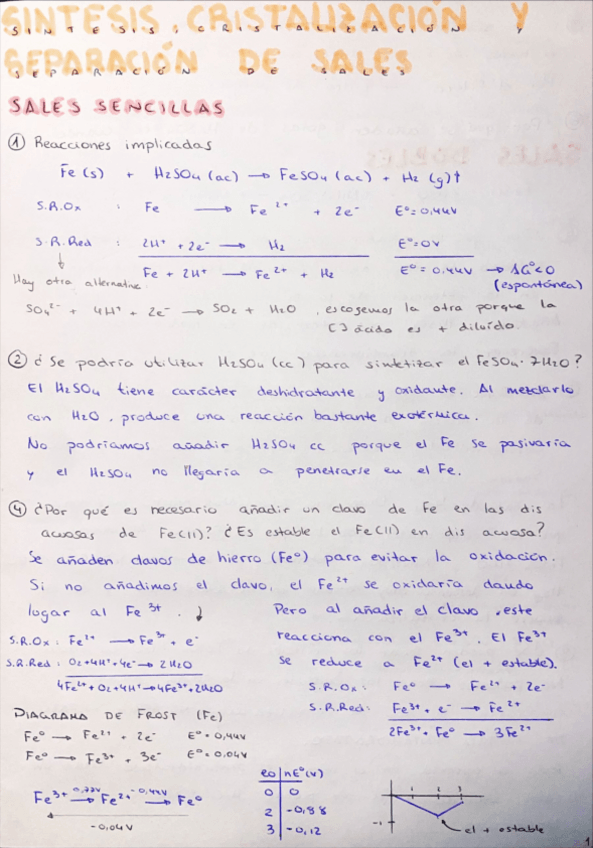 SÍNTESIS, CRISTALIZACIÓN Y
SEPARACIÓN DE SALES
SALES SENCILLAS
① Reacciones implicadas
Fe (s) + H₂SO₄ (ac) → FeSO₄ (ac) + H₂ (g)↑
S.R.Ox : Fe → Fe²⁺ + 2e⁻ E⁰=0,44V
S.R.Red : 2H⁺ + 2e⁻ → H₂ E⁰=0V
Fe + 2H⁺ → Fe²⁺ + H₂ E⁰=0,44V → ΔG⁰<0
(espontánea)
Hay otra alternativa
SO₄²⁻ + 4H⁺ + 2e⁻ → SO₂ + H₂O, escogemos la otra porque la
[] ácido es + diluido.
② ¿Se podría utilizar H₂SO₄ (cc) para sintetizar el FeSO₄·7H₂O?
El H₂SO₄ tiene carácter deshidratante y oxidante. Al mezclarlo
con H₂O, produce una reacción bastante exotérmica.
No podríamos añadir H₂SO₄ cc porque el Fe se pasivaría
y el H₂SO₄ no llegaría a penetrarse en el Fe.
④ ¿Por qué es necesario añadir un clavo de Fe en las dis
acuosas de Fe(II)? ¿Es estable el Fe(II) en dis acuosa?
Se añaden clavos de hierro (Fe⁰) para evitar la oxidación.
Si no añadimos el clavo, el Fe²⁺ se oxidaría dando
lugar al Fe³⁺.
S.R.Ox : Fe²⁺ → Fe³⁺ + e⁻
S.R.Red : O₂+4H⁺+4e⁻ → 2H₂O
4Fe²⁺+O₂+4H⁺→4Fe³⁺+2H₂O
Pero al añadir el clavo, este
reacciona con el Fe³⁺. El Fe³⁺
se reduce a Fe²⁺ (el + estable).
S.R.Ox: Fe⁰ → Fe²⁺ + 2e⁻
S.R.Red: Fe³⁺ + e⁻ → Fe²⁺
2Fe³⁺ + Fe⁰ → 3Fe²⁺
DIAGRAMA DE FROST (Fe)
Fe⁰ → Fe²⁺ + 2e⁻ E⁰=0,44V
Fe⁰ → Fe³⁺ + 3e⁻ E⁰=0.04V
0,77V -0,44V
Fe³⁺ → Fe²⁺ → Fe⁰
-0,04V
eo nE⁰(V)
0 0
2 -0,88
3 -0,12
1 2 3
-1
el + estable
1